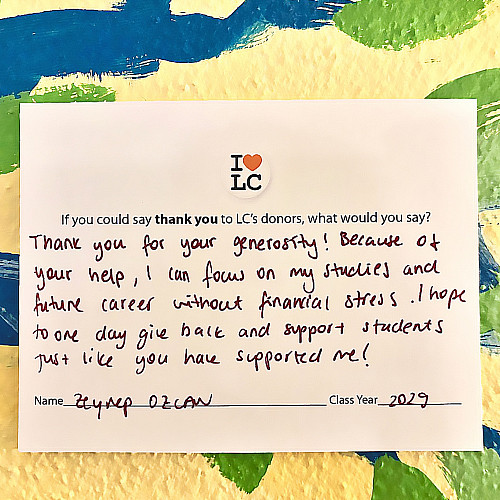 I ❤ LC
If you could say thank you to LC's donors, what would you say?
Thank you for your generosity! Because of
your help, I can focus on my studies and
future career without financial stress. I hope
to one day give back and support students
just like you have supported me!
Name Zeynep OZCAN Class Year 2029